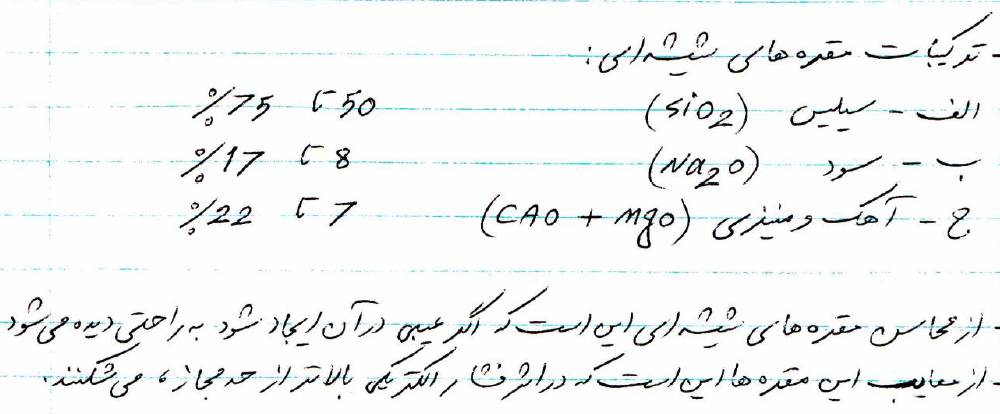 - ترکیبات مقره های شیشه ای:
الف - سیلیس (SiO2) 50 تا 75%
ب - سود (Na2O) 8 تا 17%
ج - آهک و منیزی (CAO + MgO) 7 تا 22%
- از محاسن مقره های شیشه ای این است که اگر عیبی در آن ایجاد شود به راحتی دیده می شود
- از معایب این مقره ها این است که در اثر فشار الکتریکی بالاتر از حد مجاز، می شکنند.